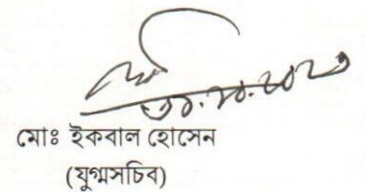 মোঃ ইকবাল হোসেন
(যুগ্মসচিব)